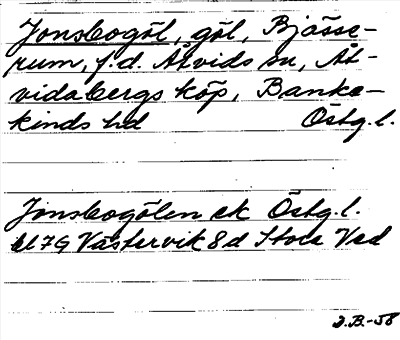 Jonsbogöl, göl, Bjässe-
rum, f.d. Åtvids sn, Åt-
vidabergs köp, Banke-
kinds hd Östg.l.
Jonsbogölen ek Östg.l.
bl 7G Västervik 8d Stora Vad
J.B.-58